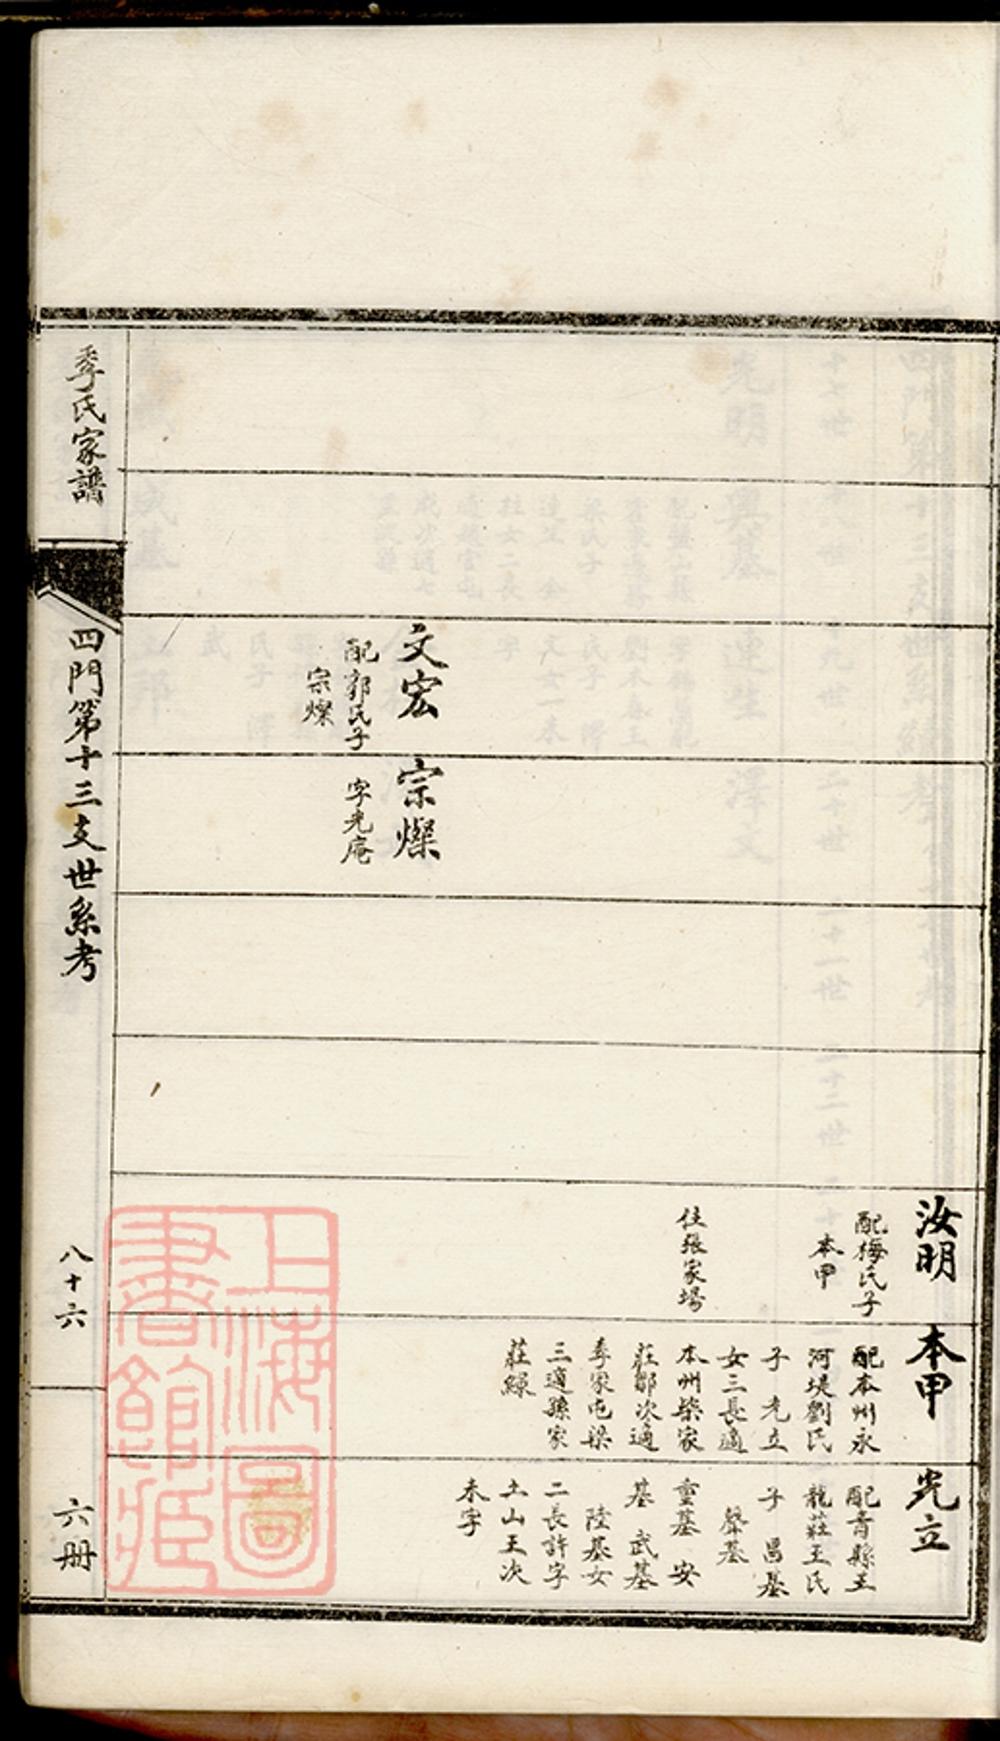 汝明
配梅氏子
本甲
住張家場
本甲
配本州永
河堤劉氏
子 光立
女三長適
本州柴家
莊鄒次適
季家屯梁
三適孫家
莊繰
光立
配青縣王
龍莊王氏
子 昌基
肇基
重基 安
基 武基
陸基女
二長許字
土山王次
未字
文宏
配郭氏子
宗燦
宗燦
字光庵
季氏家譜
四門第十三支世系考
八十六
六册
上海圖
書館藏